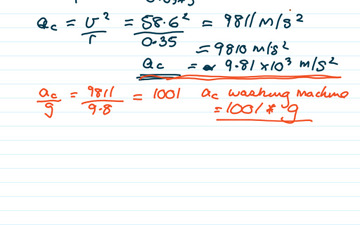 a_c = v²/r = 58.6²/0.35 = 9811 m/s²
= 9810 m/s²
a_c = 9.81 × 10³ m/s²
a_c/g = 9811/9.8 = 1001 a_c washing machine
= 1001 * g